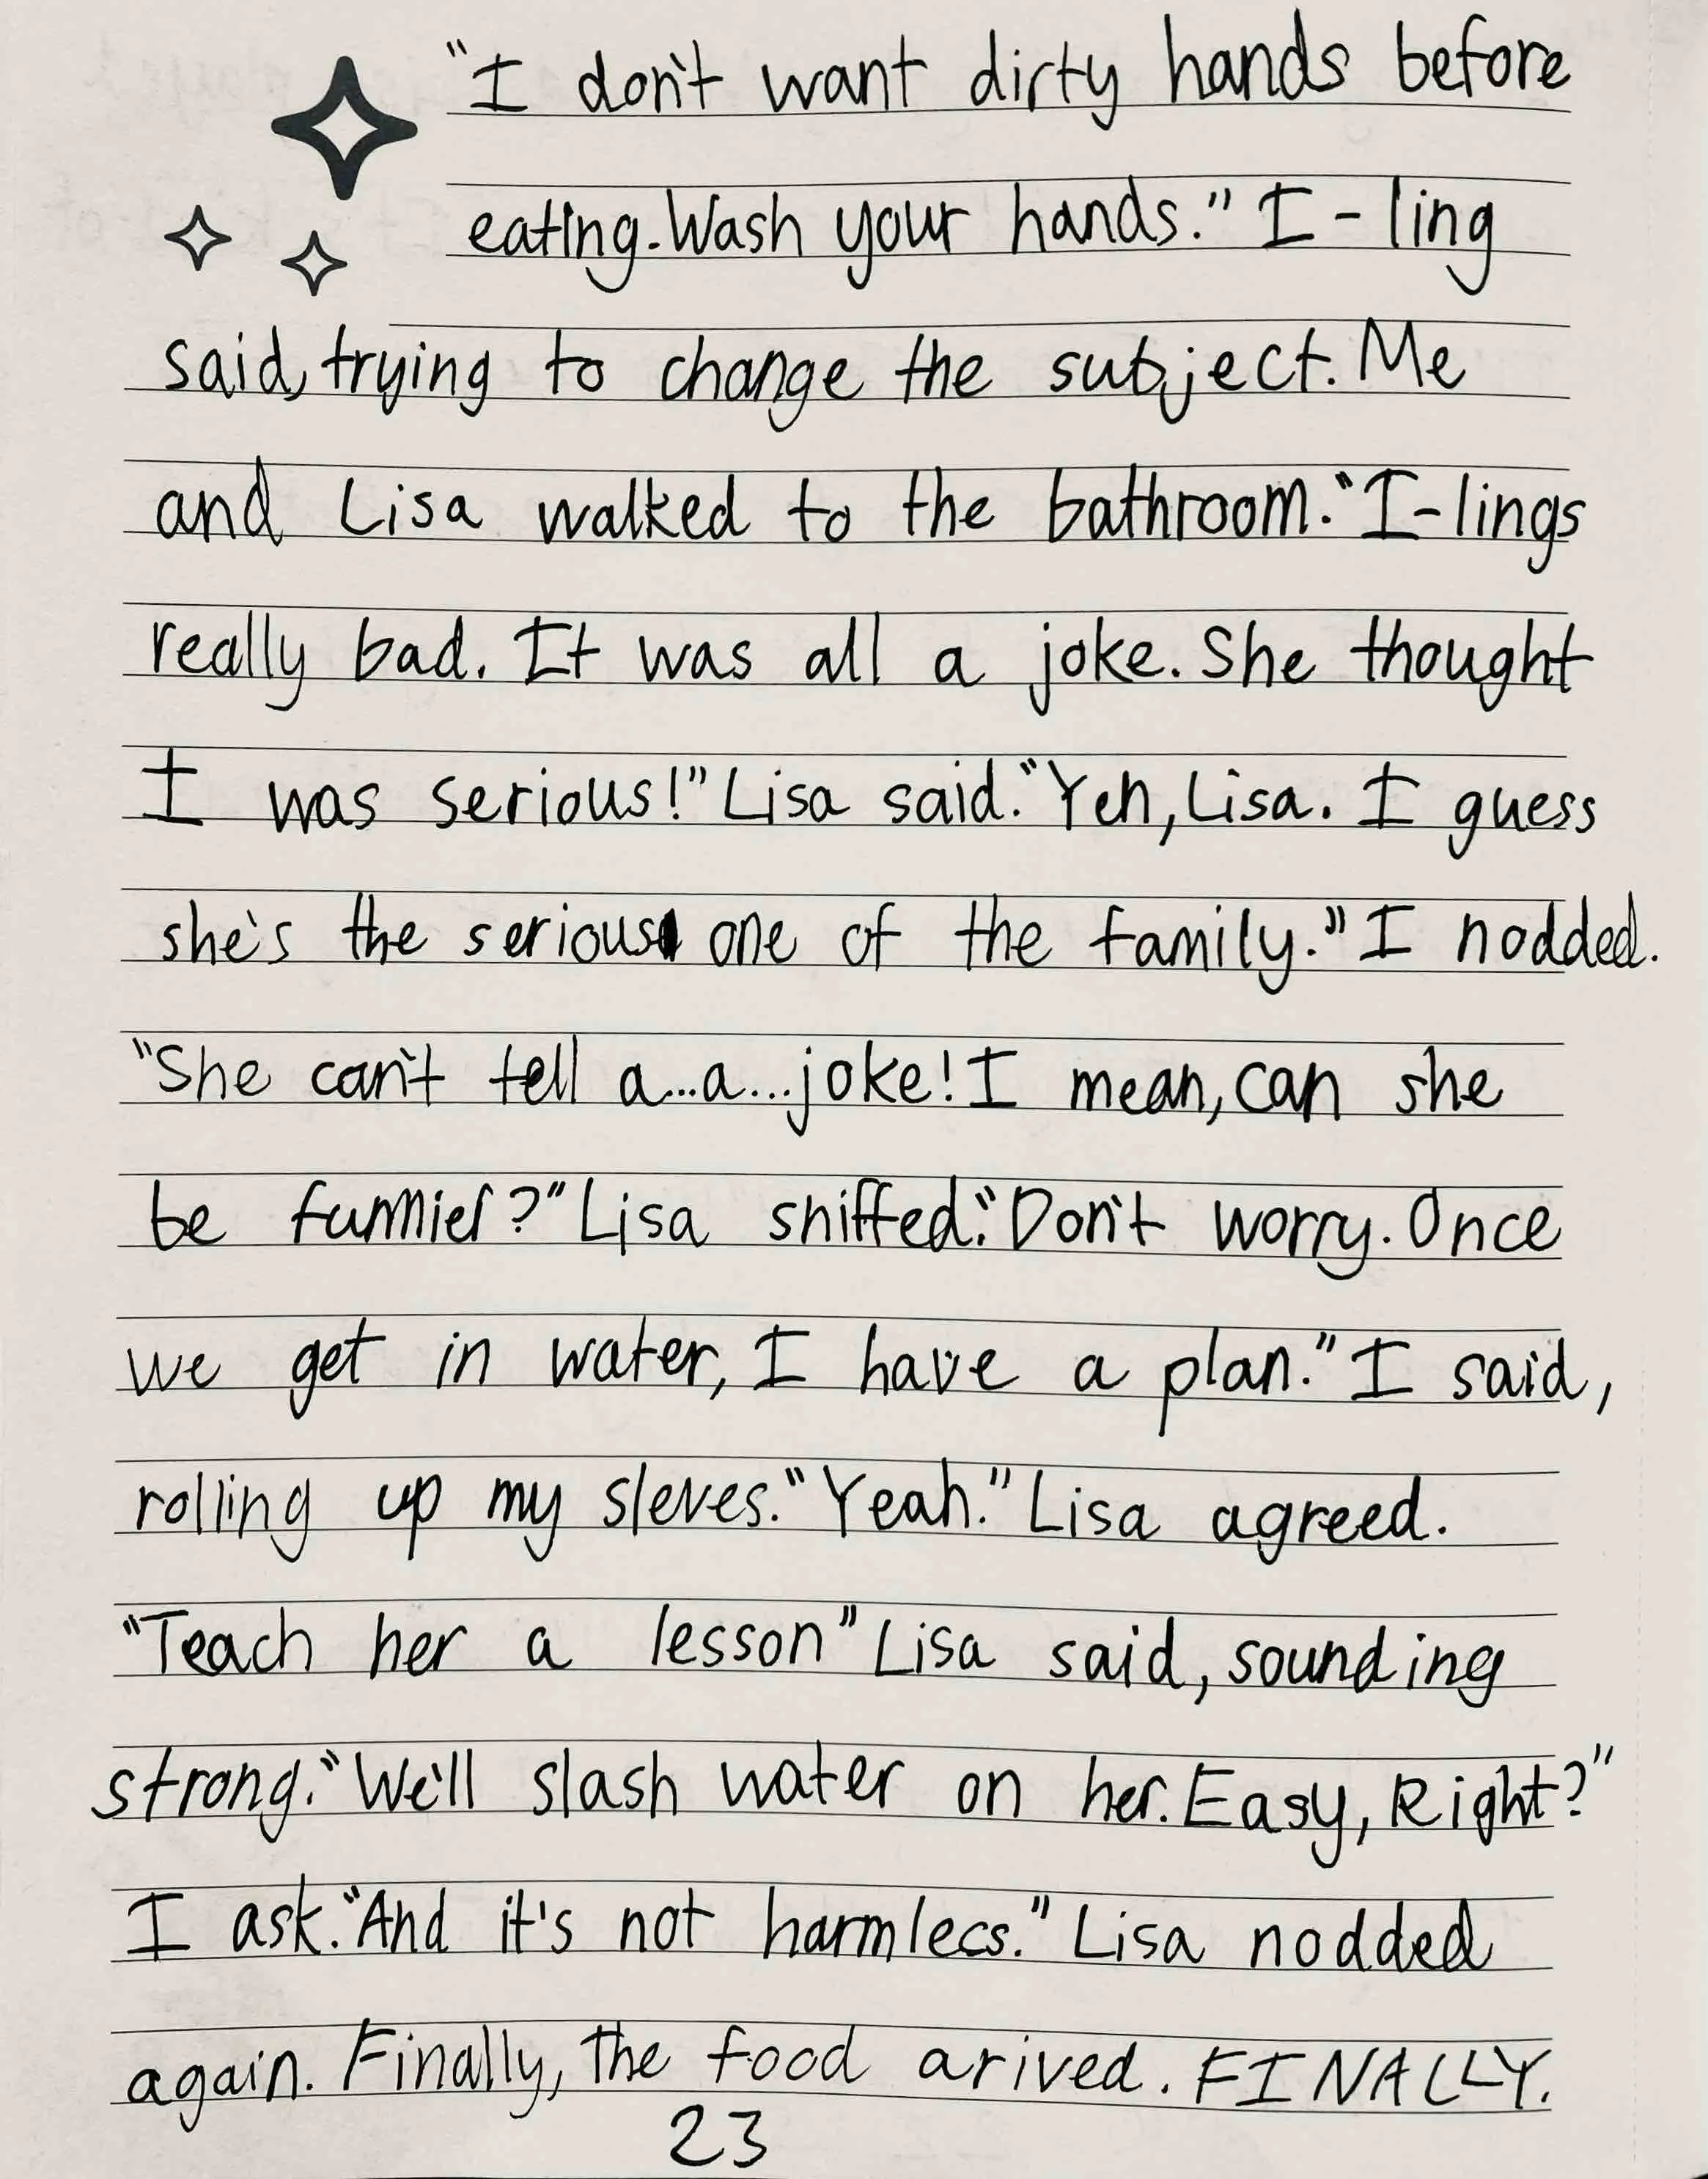 "I don't want dirty hands before
eating. Wash your hands." I-ling
said, trying to change the subject. Me
and Lisa walked to the bathroom. "I-lings
really bad. It was all a joke. She thought
I was serious!" Lisa said. "Yeh, Lisa. I guess
she's the serious one of the family." I nodded.
"She can't tell a...a...joke! I mean, can she
be funnier?" Lisa sniffed. "Don't worry. Once
we get in water, I have a plan." I said,
rolling up my sleves. "Yeah." Lisa agreed.
"Teach her a lesson" Lisa said, sounding
strong. "We'll slash water on her. Easy, Right?"
I ask. "And it's not harmlecs." Lisa nodded
again. Finally, the food arived. FINALLY.
23